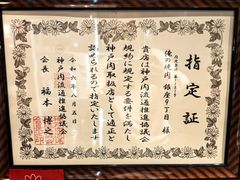 指定証
俺の焼肉 銀座9丁目 様
貴店は神戸肉流通推進協議会
規約に規定する要件を満たし
神戸肉取扱店として適正と
認められるので指定いたします
令和六年八月五日
神戸肉流通推進協議会
会長 福本博之